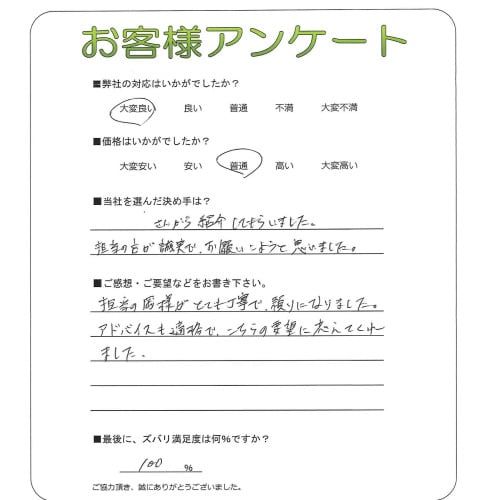 お客様アンケート
■弊社の対応はいかがでしたか？
大変良い 良い 普通 不満 大変不満
■価格はいかがでしたか？
大変安い 安い 普通 高い 大変高い
■当社を選んだ決め手は？
さんから紹介してもらいました。
担当の方が誠実で、お願いしようと思いました。
■ご感想・ご要望などをお書き下さい。
担当の様がとても丁寧で、頼りになりました。
アドバイスも適格で、こちらの要望に応えてくれ
ました。
■最後に、ズバリ満足度は何％ですか？
100 ％
ご協力頂き、誠にありがとうございました。